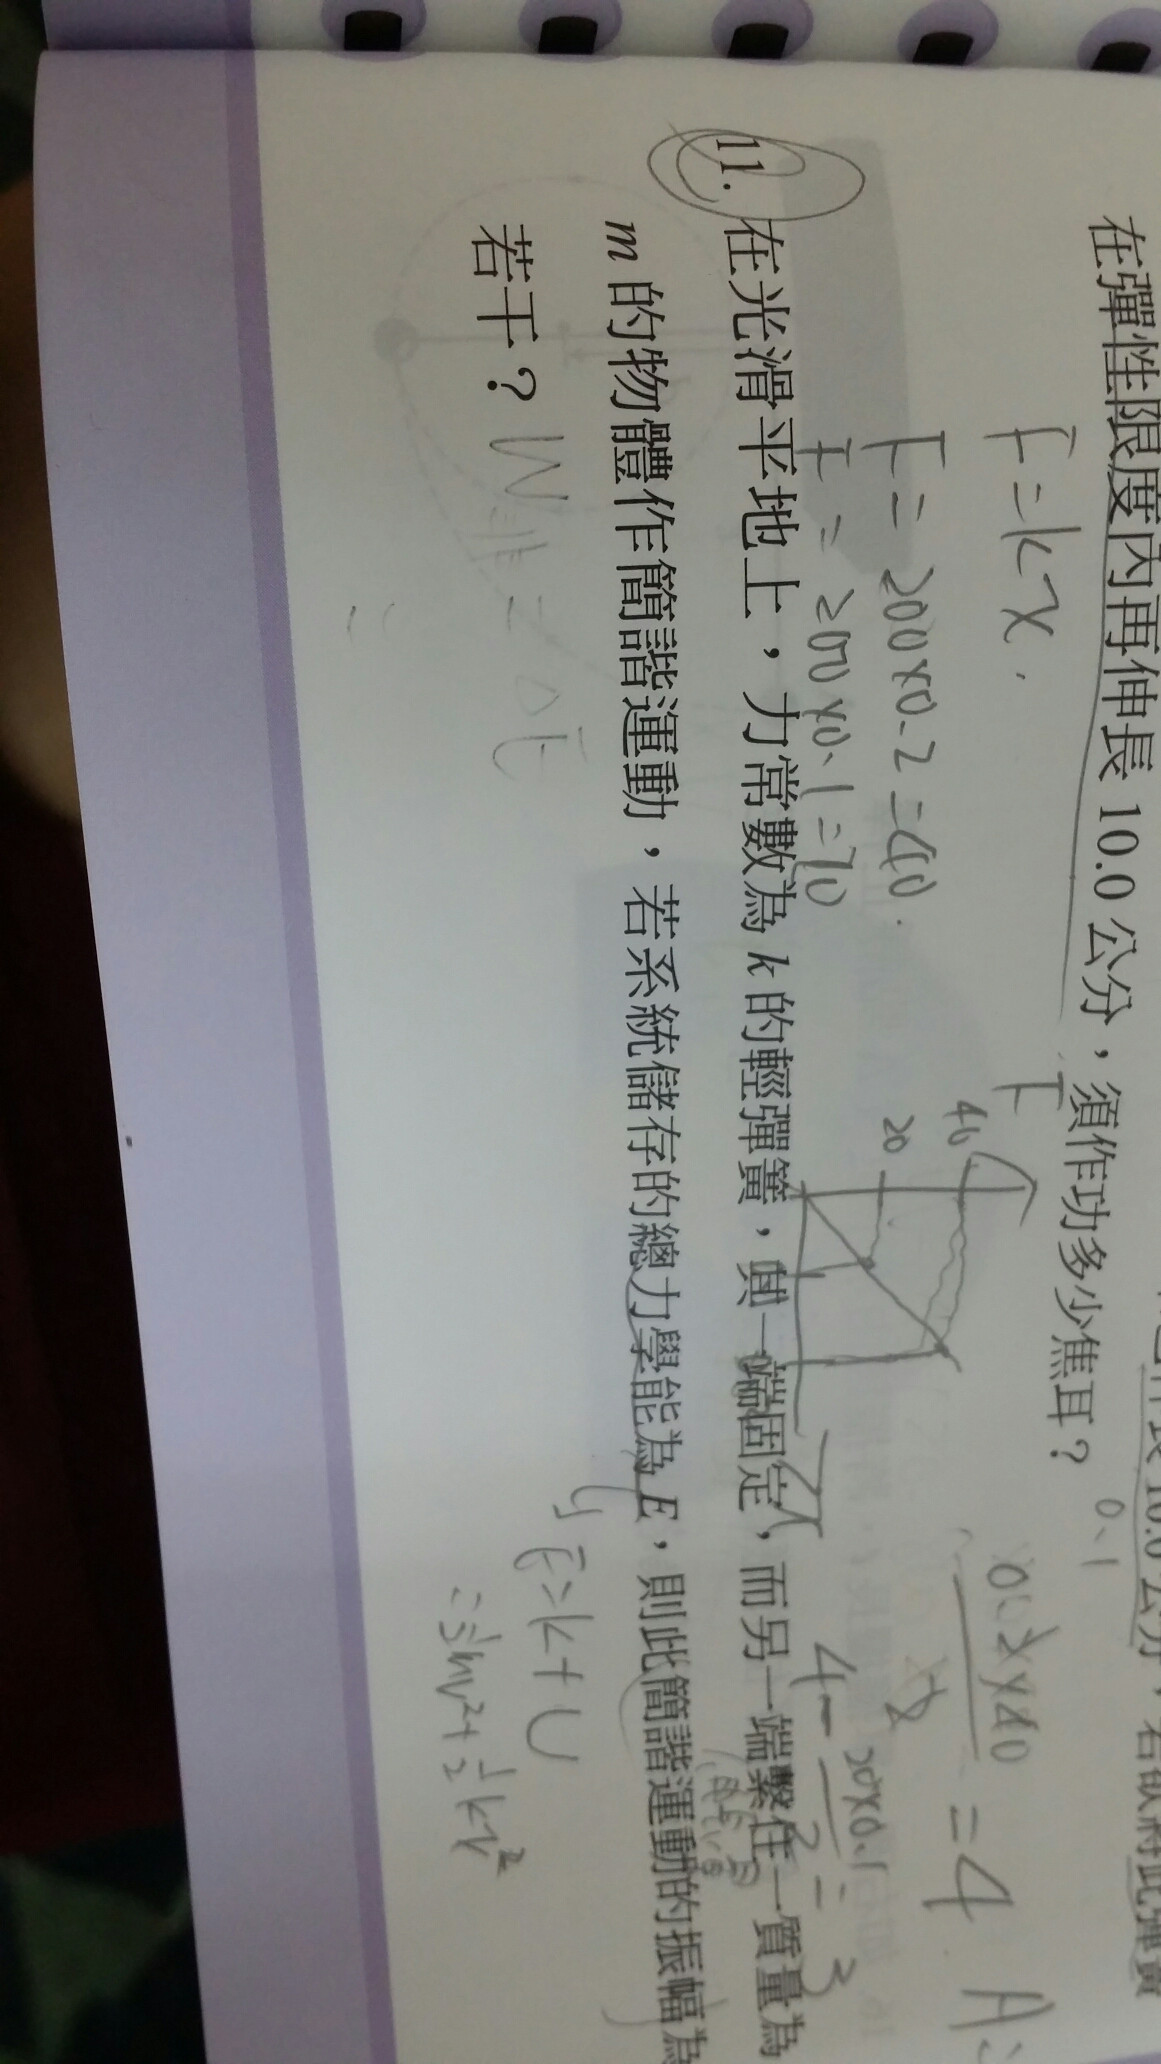 在彈性限度內再伸長 10.0 公分，須作功多少焦耳？
0.1
F=kx.
F= 200x0.2=40.
F
40
20
=4
A:
11. 在光滑平地上，力常數為 k 的輕彈簧，其一端固定，而另一端繫住一質量為
m 的物體作簡諧運動，若系統儲存的總力學能為 E，則此簡諧運動的振幅為
若干？
E=k+U
=½mv²+½kx²